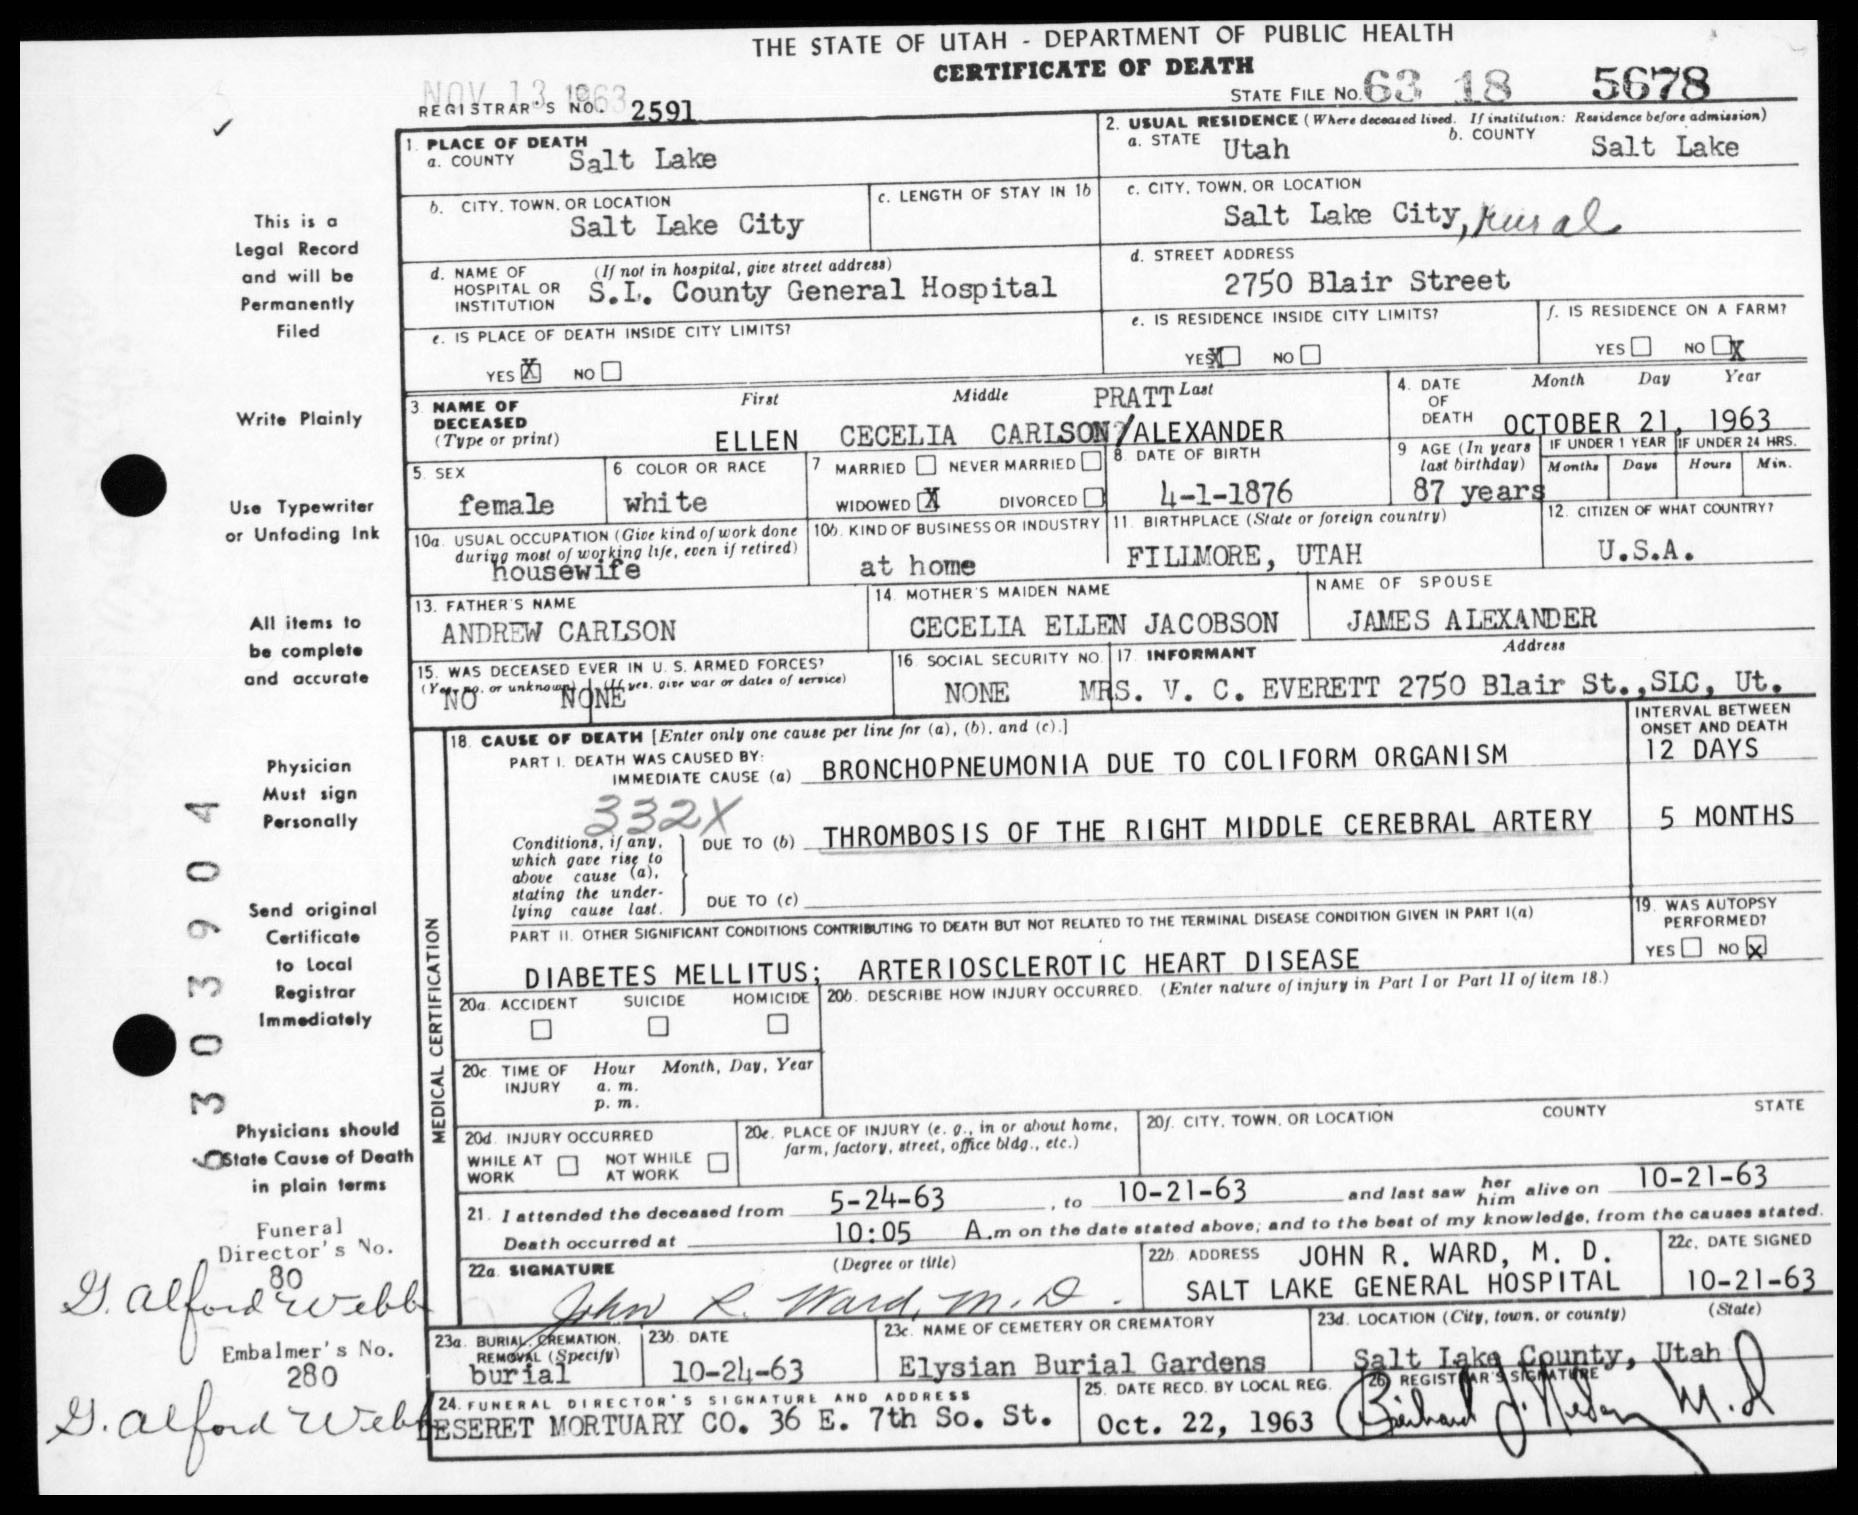 THE STATE OF UTAH - DEPARTMENT OF PUBLIC HEALTH
CERTIFICATE OF DEATH
NOV 13 1963
REGISTRAR'S NO. 2591
STATE FILE NO. 63 18 5678
1. PLACE OF DEATH
a. COUNTY Salt Lake
2. USUAL RESIDENCE (Where deceased lived. If institution: Residence before admission)
a. STATE Utah b. COUNTY Salt Lake
b. CITY, TOWN, OR LOCATION Salt Lake City
c. LENGTH OF STAY IN 1b
c. CITY, TOWN, OR LOCATION
Salt Lake City, rural
d. NAME OF HOSPITAL OR INSTITUTION (If not in hospital, give street address)
S.L. County General Hospital
d. STREET ADDRESS
2750 Blair Street
e. IS PLACE OF DEATH INSIDE CITY LIMITS?
YES X NO
e. IS RESIDENCE INSIDE CITY LIMITS?
YES X NO
f. IS RESIDENCE ON A FARM?
YES NO X
3. NAME OF DECEASED (Type or print)
First Middle Last
PRATT
ELLEN CECELIA CARLSON/ALEXANDER
4. DATE OF DEATH Month Day Year
OCTOBER 21, 1963
5. SEX
female
6. COLOR OR RACE
white
7 MARRIED NEVER MARRIED
WIDOWED X DIVORCED
8. DATE OF BIRTH
4-1-1876
9 AGE (In years last birthday)
87 years
IF UNDER 1 YEAR
Months Days
IF UNDER 24 HRS.
Hours Min.
10a. USUAL OCCUPATION (Give kind of work done during most of working life, even if retired)
housewife
10b. KIND OF BUSINESS OR INDUSTRY
at home
11. BIRTHPLACE (State or foreign country)
FILLMORE, UTAH
12. CITIZEN OF WHAT COUNTRY?
U.S.A.
13. FATHER'S NAME
ANDREW CARLSON
14. MOTHER'S MAIDEN NAME
CECELIA ELLEN JACOBSON
NAME OF SPOUSE
JAMES ALEXANDER
15. WAS DECEASED EVER IN U. S. ARMED FORCES?
(Yes, no, or unknown) (If yes, give war or dates of service)
NO NONE
16. SOCIAL SECURITY NO.
NONE
17. INFORMANT Address
MRS. V. C. EVERETT 2750 Blair St.,SLC, Ut.
MEDICAL CERTIFICATION
18. CAUSE OF DEATH [Enter only one cause per line for (a), (b), and (c).]
INTERVAL BETWEEN ONSET AND DEATH
PART I. DEATH WAS CAUSED BY:
IMMEDIATE CAUSE (a) BRONCHOPNEUMONIA DUE TO COLIFORM ORGANISM 12 DAYS
332X
Conditions, if any, which gave rise to above cause (a), stating the underlying cause last.
DUE TO (b) THROMBOSIS OF THE RIGHT MIDDLE CEREBRAL ARTERY 5 MONTHS
DUE TO (c)
PART II. OTHER SIGNIFICANT CONDITIONS CONTRIBUTING TO DEATH BUT NOT RELATED TO THE TERMINAL DISEASE CONDITION GIVEN IN PART I(a)
DIABETES MELLITUS; ARTERIOSCLEROTIC HEART DISEASE
19. WAS AUTOPSY PERFORMED?
YES NO X
20a. ACCIDENT SUICIDE HOMICIDE
20b. DESCRIBE HOW INJURY OCCURRED. (Enter nature of injury in Part I or Part II of item 18.)
20c. TIME OF INJURY Hour Month, Day, Year
a. m.
p. m.
20d. INJURY OCCURRED
WHILE AT WORK NOT WHILE AT WORK
20e. PLACE OF INJURY (e. g., in or about home, farm, factory, street, office bldg., etc.)
20f. CITY, TOWN, OR LOCATION COUNTY STATE
21. I attended the deceased from 5-24-63, to 10-21-63 and last saw her him alive on 10-21-63
Death occurred at 10:05 A.m on the date stated above; and to the best of my knowledge, from the causes stated.
22a. SIGNATURE (Degree or title)
John R. Ward, M.D.
22b. ADDRESS JOHN R. WARD, M. D.
SALT LAKE GENERAL HOSPITAL
22c. DATE SIGNED
10-21-63
23a. BURIAL, CREMATION, REMOVAL (Specify)
burial
23b. DATE
10-24-63
23c. NAME OF CEMETERY OR CREMATORY
Elysian Burial Gardens
23d. LOCATION (City, town, or county) (State)
Salt Lake County, Utah
24. FUNERAL DIRECTOR'S SIGNATURE AND ADDRESS
DESERET MORTUARY CO. 36 E. 7th So. St.
25. DATE RECD. BY LOCAL REG.
Oct. 22, 1963
26. REGISTRAR'S SIGNATURE
M.D
This is a
Legal Record
and will be
Permanently
Filed
Write Plainly
Use Typewriter
or Unfading Ink
All items to
be complete
and accurate
Physician
Must sign
Personally
Send original
Certificate
to Local
Registrar
Immediately
Physicians should
State Cause of Death
in plain terms
6303904
Funeral
Director's No.
80
G. Alford Webb
Embalmer's No.
280
G. Alford Webb